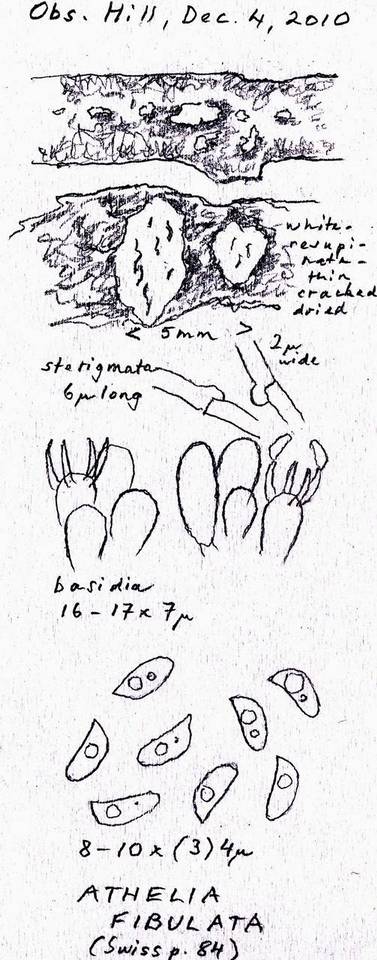 Obs. Hill, Dec. 4, 2010
white-
resupi-
nate-
thin
cracked
dried
< 5mm >
2μ
wide
sterigmata
6μ long
basidia
16-17 x 7μ
8-10 x (3) 4μ
ATHELIA
FIBULATA
(Swiss p. 84)